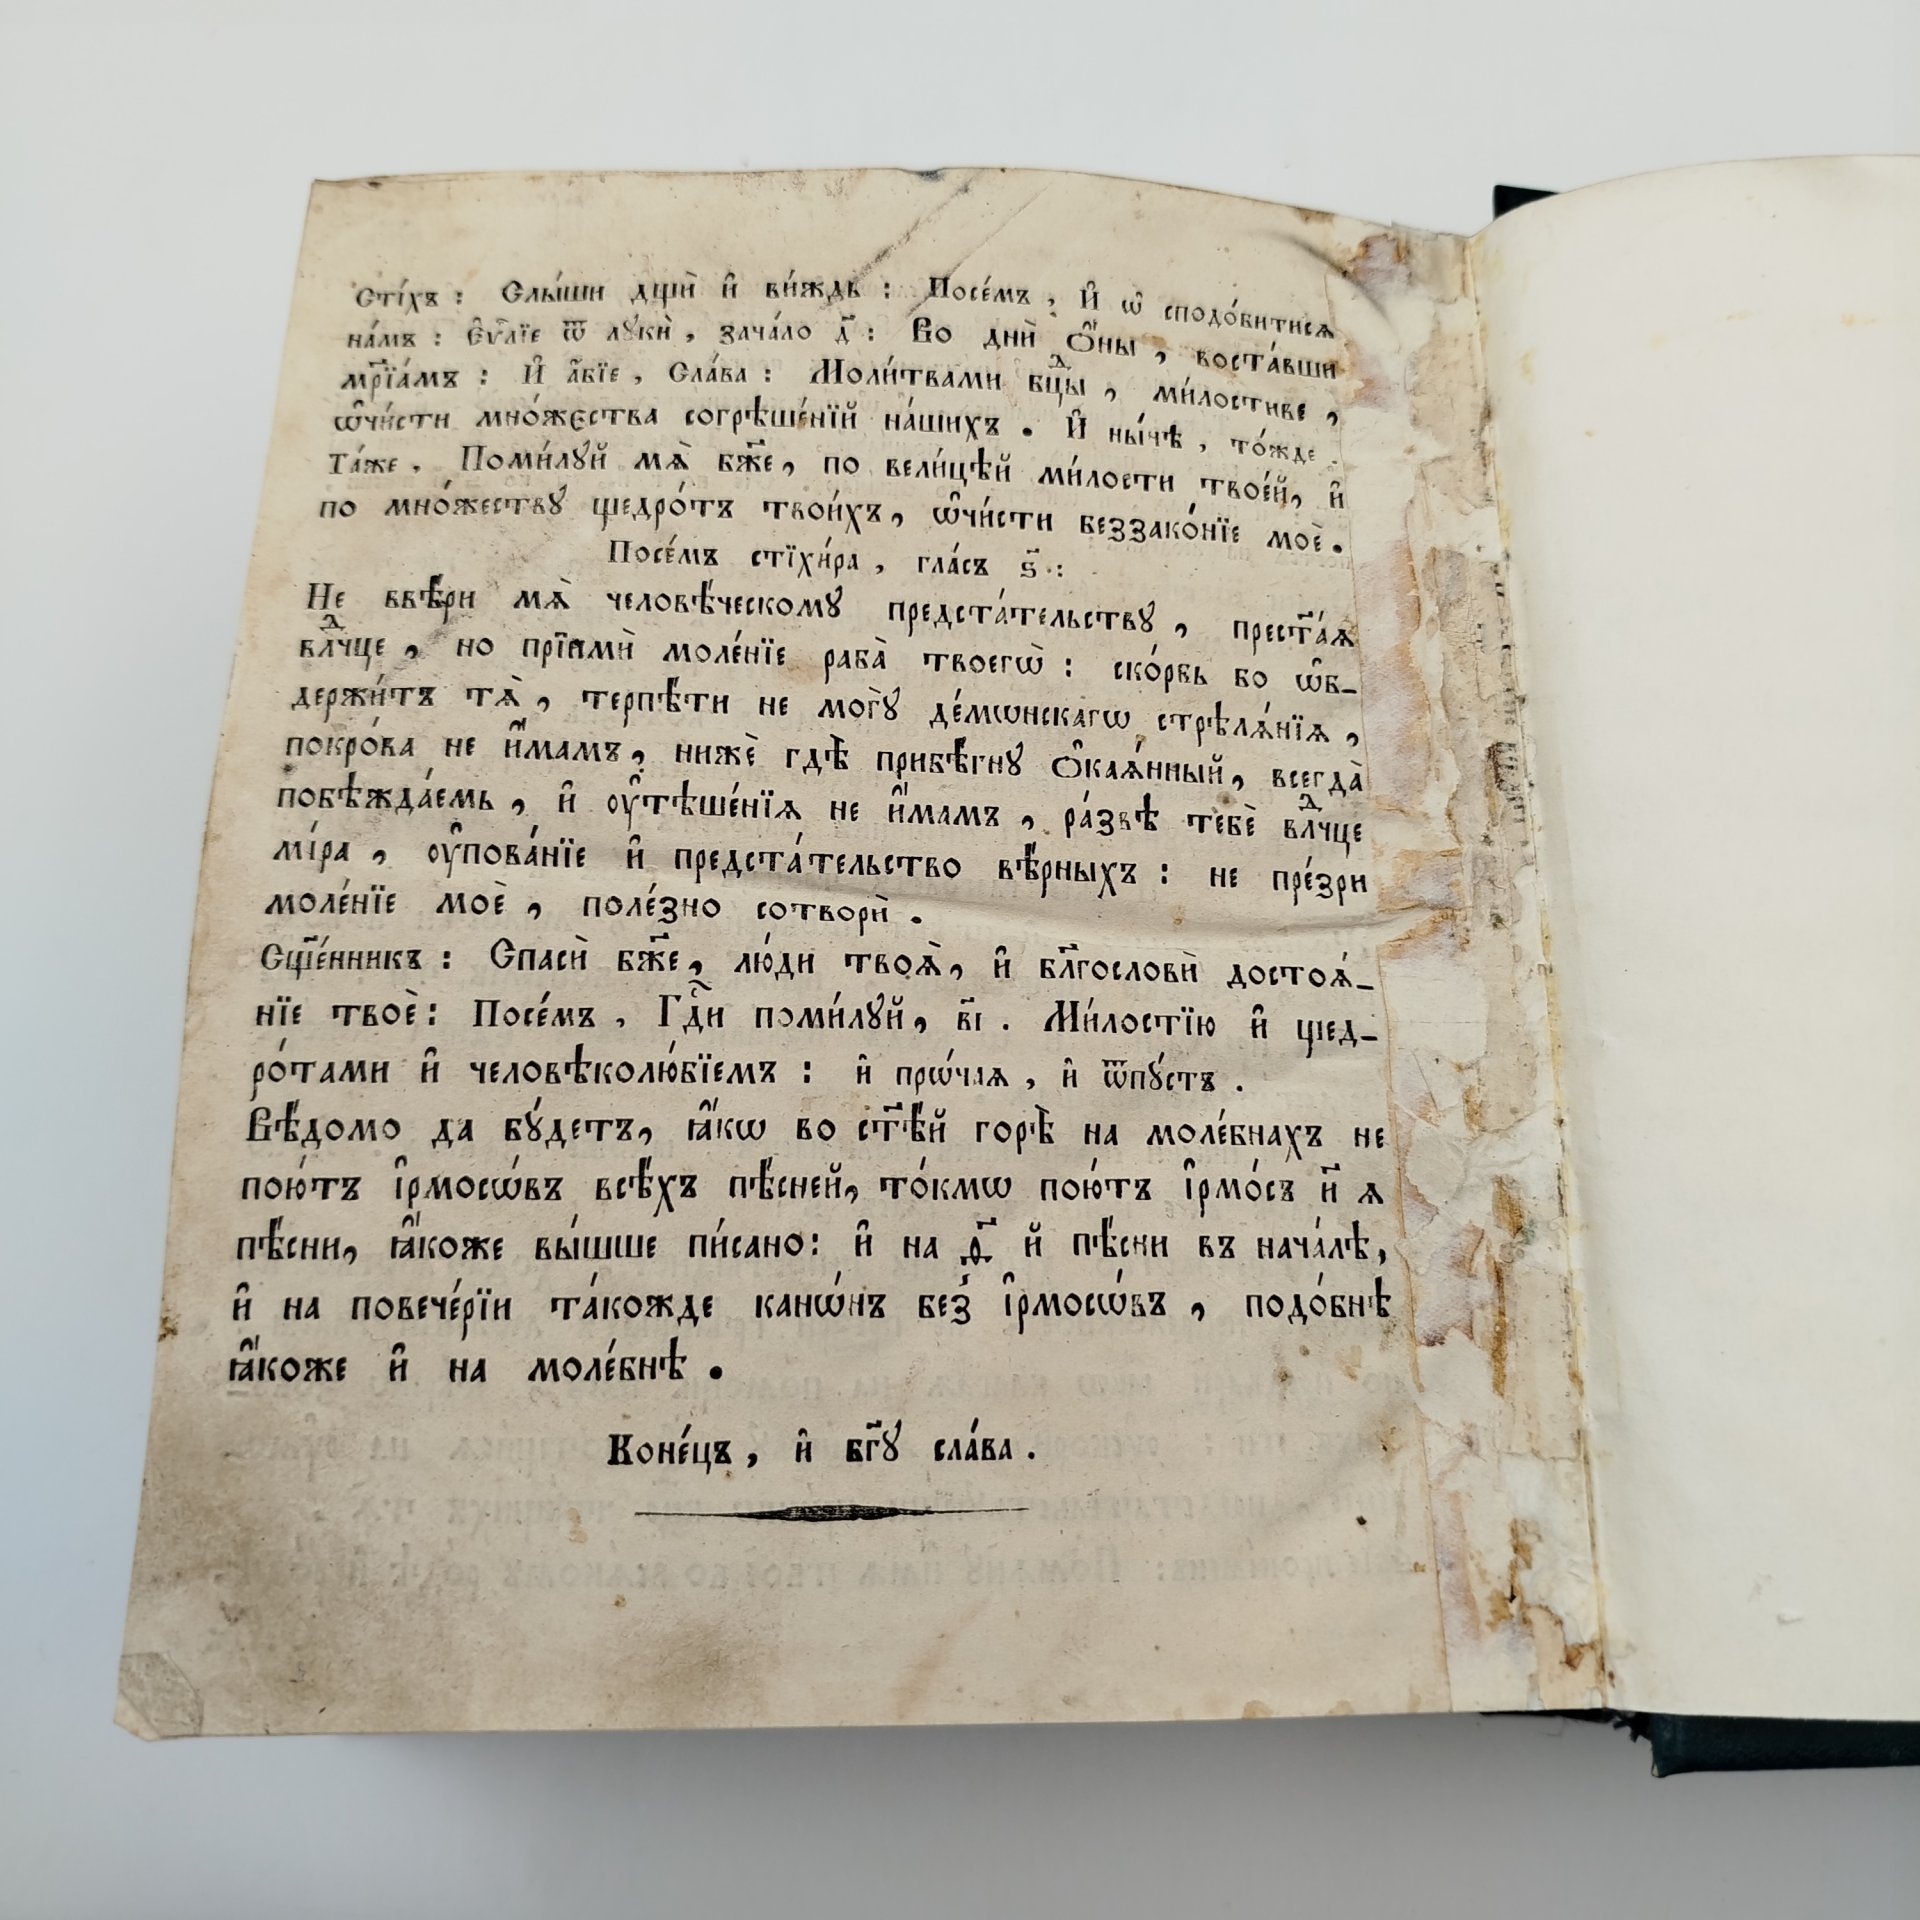 Сті́хъ : Слы́ши дщѝ и҆ ви́ждь : Посе́мъ , И҆ ѡ҆ сподо́битися
на́мъ : Є҆ѵⷢ҇лїе ѿ лꙋкѝ , зача́ло д҃ : Во днѝ ѻ҆́ны , воста́вши
мр҃їа́мъ : И҆ а҆́бїе , Сла́ва : Моли́твами бцⷣы , ми́лостиве ,
ѡ҆чи́сти мно́жєства согрѣше́нїй на́шихъ . И҆ ны́нѣ , то́жде .
Та́же , Поми́лꙋй мѧ̀ бж҃е , по вели́цѣй ми́лости твое́й , и҆
по мно́жествꙋ щедро́тъ твои́хъ , ѡ҆чи́сти беззако́нїе моѐ .
Посе́мъ стїхи́ра , гла́съ ѕ҃ :
Не ввѣ́ри мѧ̀ человѣ́ческомꙋ предста́тельствꙋ , прест҃а́ѧ
влⷣчце , но прїимѝ моле́нїе раба̀ твоегѡ̀ : ско́рбь бо ѡ҆б-
держи́тъ мѧ̀ , терпѣ́ти не могꙋ̀ де́мѡнскагѡ стрѣлѧ́нїѧ ,
покро́ва не и҆́мамъ , нижѐ гдѣ̀ прибѣ́гнꙋ ѻ҆каѧ́нный , всегда̀
побѣжда́емь , и҆ оу҆тѣше́нїѧ не и҆́мамъ , ра́звѣ тебѐ влⷣчце
мі́ра , оу҆пова́нїе и҆ предста́тельство вѣ́рныхъ : не пре́зри
моле́нїе моѐ , поле́зно сотворѝ .
Сщ҃е́нникъ : Спасѝ бж҃е , лю́ди твоѧ̀ , и҆ бл҃гословѝ достоѧ́-
нїе твоѐ : Посе́мъ , Гдⷭ҇и поми́лꙋй , в҃і . Ми́лостїю и҆ щед-
ро́тами и҆ человѣколю́бїемъ : и҆ прѡ́чаѧ , и҆ ѿпꙋ́стъ .
Вѣ́домо да бꙋ́детъ , ꙗ҆́кѡ во ст҃ѣ́й горѣ̀ на моле́бнахъ не
пою́тъ і҆рмосѡ́въ всѣ́хъ пѣ́сней , то́кмѡ пою́тъ і҆рмо́съ и҃ ѧ
пѣ́сни , ꙗ҆́коже вы́шше пи́сано : и҆ на ѳ҃ й пѣ́сни въ нача́лѣ ,
и҆ на повече́рїи та́кожде канѡ́нъ без̾ і҆рмосѡ́въ , подо́бнѣ
ꙗ҆́коже и҆ на моле́бнѣ .
Коне́цъ , и҆ бг҃ꙋ сла́ва .